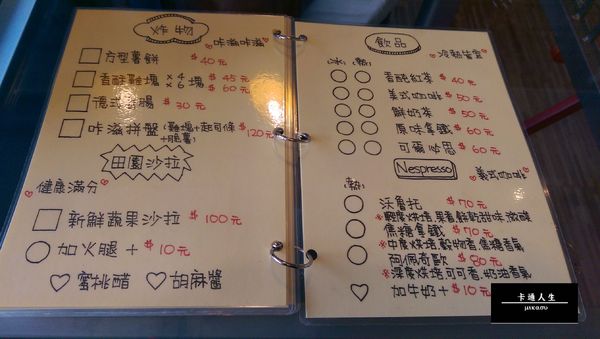 炸物
咔滋咔滋
方型薯餅 $40元
香酥雞塊 ×4塊 $45元
×6塊 $60元
德式香腸 $30元
咔滋拼盤(雞塊+起司條+脆薯) $120元
田園沙拉
健康滿分
新鮮蔬果沙拉 $100元
加火腿 + $10元
蜜桃醋 胡麻醬
飲品
冰 熱
香醇紅茶 $40元
美式咖啡 $50元
鮮奶茶 $50元
原味拿鐵 $60元
可可 $60元
Nespresso 美式咖啡
(熱)
沃魯托 $70元
※輕度烘培 果香 餅乾甜味 微酸
焦糖拿鐵 $70元
※中度烘培 穀物香 焦糖香氣
阿佩奇歐 $80元
※深度烘培 可可香.奶油香氣
加牛奶+ $10元
卡通人生